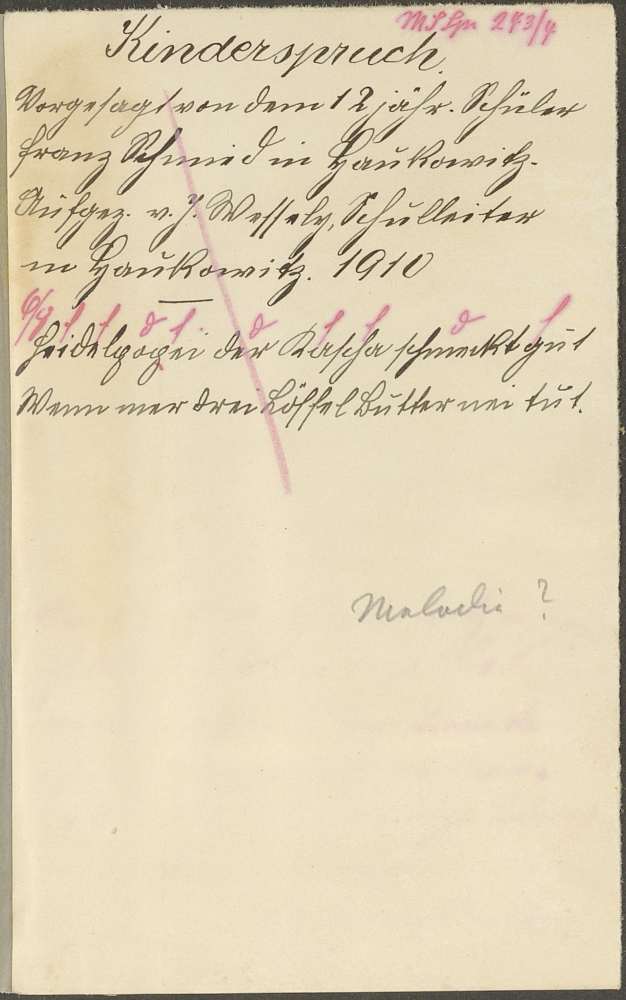 MS Sp 273/4
Kinderspruch.
Vorgesagt von dem 12 jähr. Schüler
Franz Schmied in Haukowitz.
Aufgez. v. J. Wessely, Schulleiter
in Haukowitz. 1910
6/8
Heidelpopei der Kascha schmeckt gut
Wenn mer drei Löffel Butter nei tut.
Melodie ?